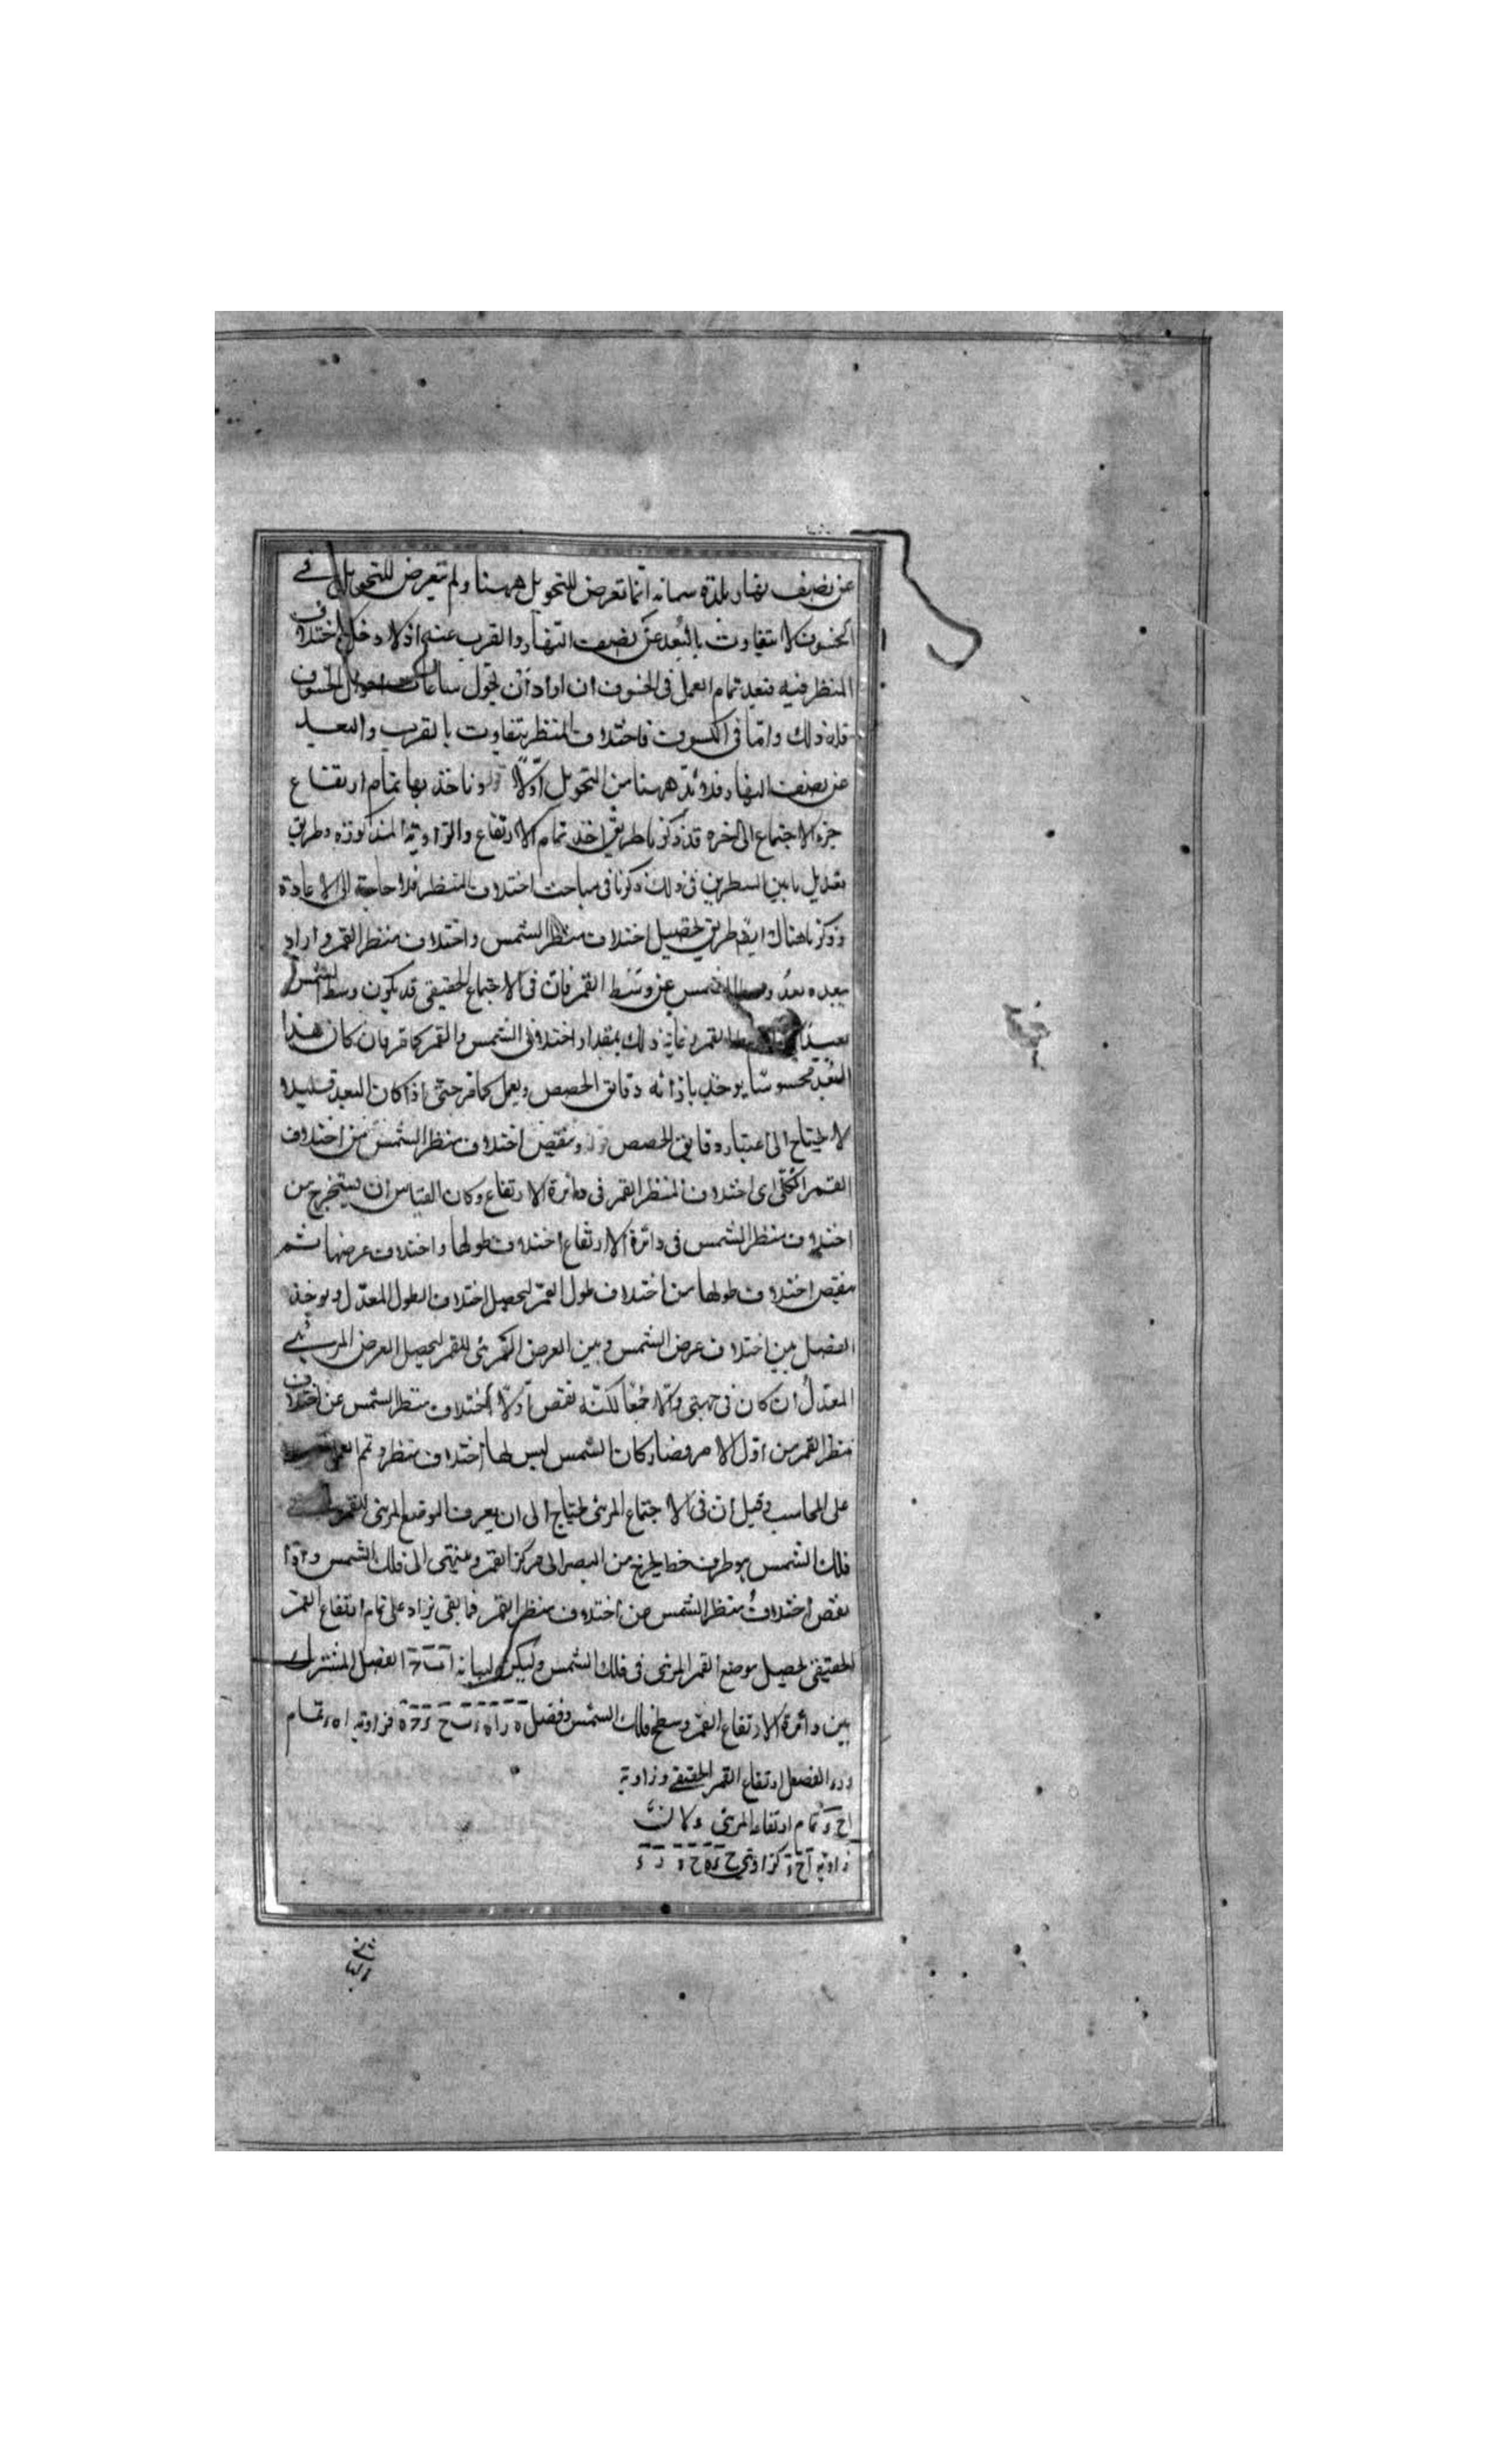 عن نصف نهار بلدة سمانه انما تعرض للتحويل ههنا ولم يتعرض للتحويل في
الخسوف لا يتفاوت بالبعد عن نصف النهار والقرب عنه اذ لا دخل لاختلاف
المنظر فيه فبعد تمام العمل في الخسوف ان اراد ان يحول ساعات احوال الخسوف
فله ذلك واما في الكسوف فاختلاف المنظر يتفاوت بالقرب والبعد
عن نصف النهار فلا بد ههنا من التحويل اولا قوله وناخذ بها تمام ارتفاع
جزء الاجتماع الى اخره قد ذكرنا طريق اخذ تمام الارتفاع والزاوية المذكورة وطريق
تعديل ما بين السطرين في ذلك ذكرنا في مباحث اختلاف المنظر فلا حاجة الى الاعادة
وذكرنا هناك ايضا طريق تحصيل اختلاف منظر الشمس واختلاف منظر القمر واراد
ببعده بعد وسط الشمس عن وسط القمر فان في الاجتماع الحقيقي قد يكون وسط الشمس
بعيدا القمر وغاية ذلك بمقدار اختلافي الشمس والقمر كما مر فان كان هذا
البعد محسوسا يوخذ بازائه دقايق الحصص ويعمل كما مر حتى اذا كان البعد قليلا
لا يحتاج الى اعتبار دقايق الحصص قوله وينقص اختلاف منظر الشمس من اختلاف
القمر الكلي اى اختلاف المنظر القمر في دائرة الارتفاع وكان القياس ان يستخرج من
اختلاف منظر الشمس في دائرة الارتفاع اختلاف طولها واختلاف عرضها ثم
ينقص اختلاف طولها من اختلاف طول القمر ليحصل اختلاف الطول المعدل ويوخذ
الفضل بين اختلاف عرض الشمس وبين العرض المرئي للقمر ليحصل العرض المرئي
المعدل ان كان في جهتي والا جمعا لكنه نقص اولا اختلاف منظر الشمس عن اختلاف
منظر القمر من اول الامر فصار كان الشمس ليس لها اختلاف منظر وتم
على المحاسب وقيل ان في الاجتماع المرئي يحتاج الى ان يعرف الموضع المرئي للقمر في
فلك الشمس هو طرف خط يخرج من البصر الى مركز القمر وينتهى الى فلك الشمس واذا
نقص اختلاف منظر الشمس من اختلاف منظر القمر فما بقى يزاد على تمام ارتفاع القمر
الحقيقي ليحصل موضع القمر المرئى في فلك الشمس وليكن لبيانه ا ب ج ا الفصل المشترك
بين دائرة الارتفاع القمر وسطح فلك الشمس وفصل فزاوية ا ه ر تمام
الفصل ارتفاع القمر الحقيقي وزاوية
ا ح و تمام ارتفاعه المرئى ولان
زاوية ا ح و كزاويتي